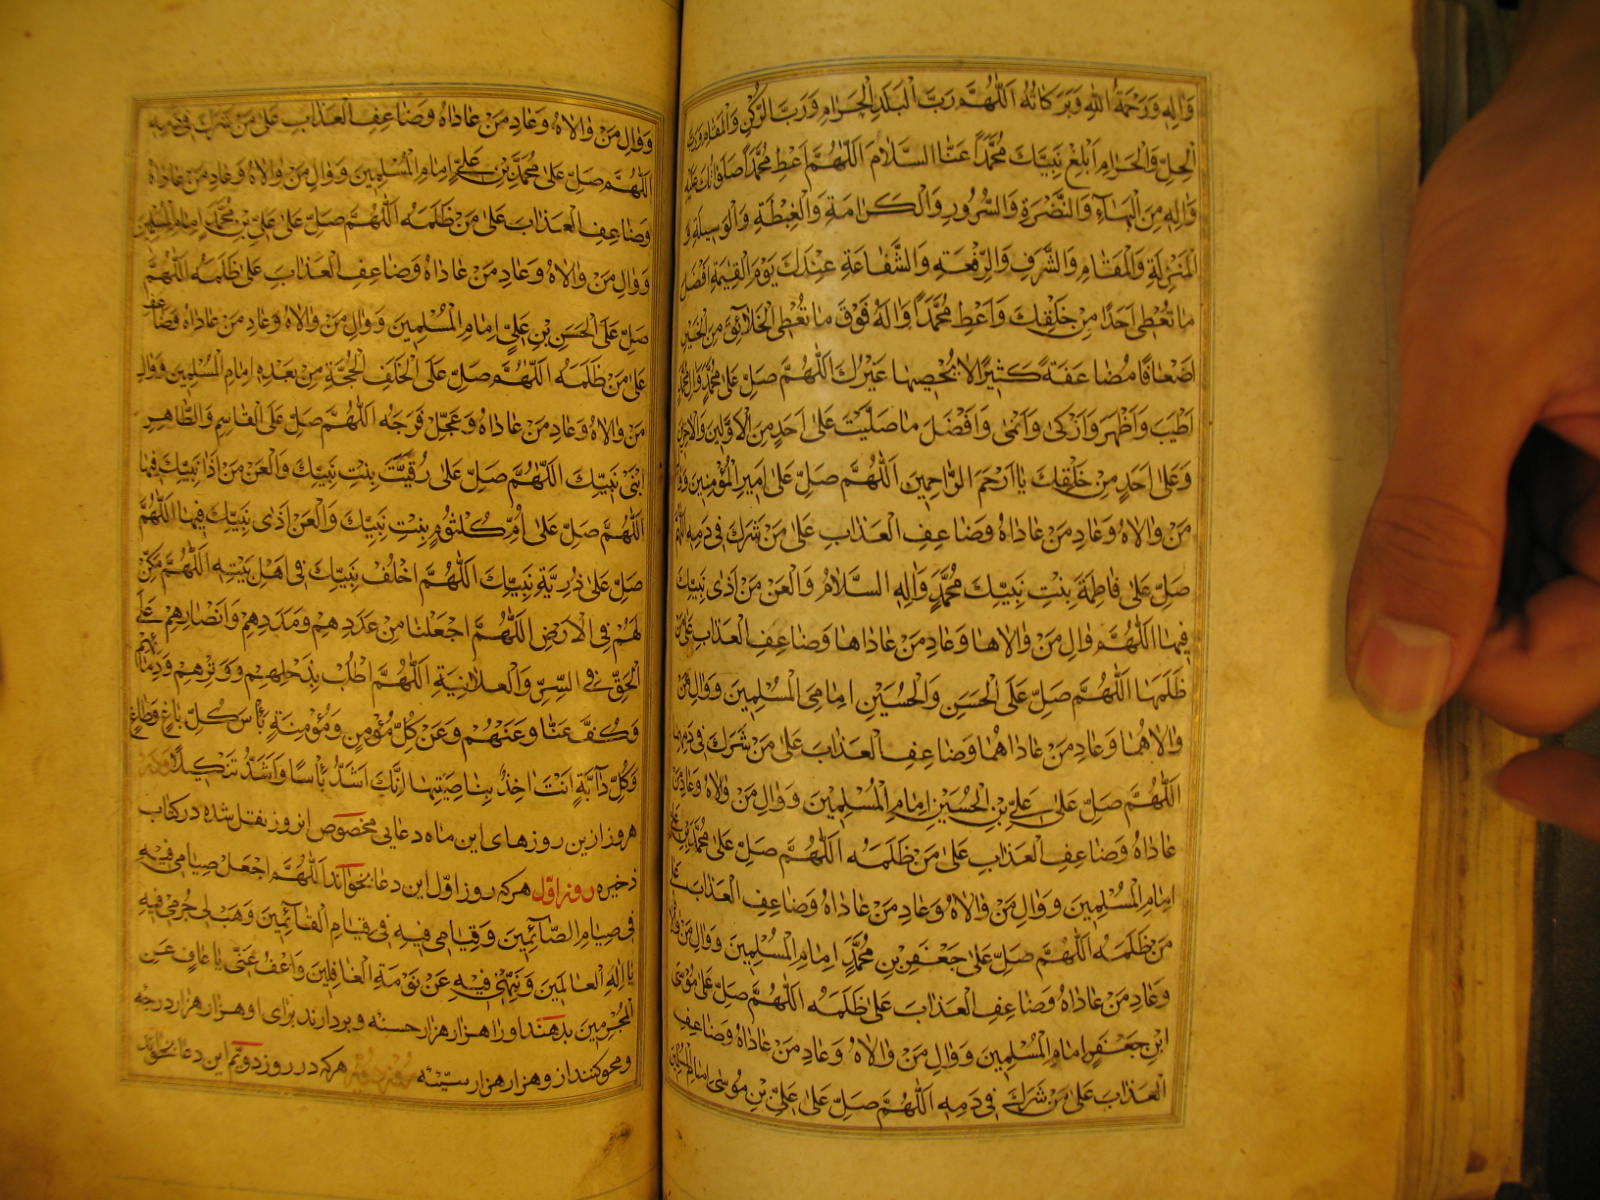 وَاٰلِهِ وَرَحْمَةُ اللّٰهِ وَبَرَكَاتُهُ اَللّٰهُمَّ رَبَّ الْبَلَدِ الْحَرَامِ وَرَبَّ الرُّكْنِ وَالْمَقَامِ وَرَبَّ
الْحِلِّ وَالْحَرَامِ اَبْلِغْ نَبِيَّكَ مُحَمَّدًا عَنَّا السَّلَامَ اَللّٰهُمَّ اَعْطِ مُحَمَّدًا صَلَوَاتُكَ عَلَيْهِ
وَاٰلِهِ مِنَ الْبَهَاءِ وَالنَّضْرَةِ وَالسُّرُورِ وَالْكَرَامَةِ وَالْغِبْطَةِ وَالْوَسِيلَةِ وَ
الْمَنْزِلَةِ وَالْمَقَامِ وَالشَّرَفِ وَالرِّفْعَةِ وَالشَّفَاعَةِ عِنْدَكَ يَوْمَ الْقِيٰمَةِ اَفْضَلَ
مَا تُعْطِي اَحَدًا مِنْ خَلْقِكَ وَاَعْطِ مُحَمَّدًا وَاٰلَهُ فَوْقَ مَا تُعْطِي الْخَلَائِقَ مِنَ الْخَيْرِ
اَضْعَافًا مُضَاعَفَةً كَثِيرًا لَا يُحْصِيهَا غَيْرُكَ اَللّٰهُمَّ صَلِّ عَلٰى مُحَمَّدٍ وَاٰلِ مُحَمَّدٍ
اَطْيَبَ وَاَطْهَرَ وَاَزْكٰى وَاَنْمٰى وَاَفْضَلَ مَا صَلَّيْتَ عَلٰى اَحَدٍ مِنَ الْاَوَّلِينَ وَالْاٰخِرِينَ
وَعَلٰى اَحَدٍ مِنْ خَلْقِكَ يَا اَرْحَمَ الرَّاحِمِينَ اَللّٰهُمَّ صَلِّ عَلٰى اَمِيرِ الْمُؤْمِنِينَ وَوَالِ
مَنْ وَالَاهُ وَعَادِ مَنْ عَادَاهُ وَضَاعِفِ الْعَذَابَ عَلٰى مَنْ شَرِكَ فِي دَمِهِ اَللّٰهُمَّ
صَلِّ عَلٰى فَاطِمَةَ بِنْتِ نَبِيِّكَ مُحَمَّدٍ وَاٰلِهِ السَّلَامُ وَالْعَنْ مَنْ اٰذٰى نَبِيَّكَ
فِيهَا اَللّٰهُمَّ وَالِ مَنْ وَالَاهَا وَعَادِ مَنْ عَادَاهَا وَضَاعِفِ الْعَذَابَ عَلٰى مَنْ
ظَلَمَهَا اَللّٰهُمَّ صَلِّ عَلَى الْحَسَنِ وَالْحُسَيْنِ اِمَامَيِ الْمُسْلِمِينَ وَوَالِ مَنْ
وَالَاهُمَا وَعَادِ مَنْ عَادَاهُمَا وَضَاعِفِ الْعَذَابَ عَلٰى مَنْ شَرِكَ فِي دَمِهِمَا
اَللّٰهُمَّ صَلِّ عَلٰى عَلِيِّ بْنِ الْحُسَيْنِ اِمَامِ الْمُسْلِمِينَ وَوَالِ مَنْ وَالَاهُ وَعَادِ مَنْ
عَادَاهُ وَضَاعِفِ الْعَذَابَ عَلٰى مَنْ ظَلَمَهُ اَللّٰهُمَّ صَلِّ عَلٰى مُحَمَّدِ بْنِ عَلِيٍّ
اِمَامِ الْمُسْلِمِينَ وَوَالِ مَنْ وَالَاهُ وَعَادِ مَنْ عَادَاهُ وَضَاعِفِ الْعَذَابَ عَلٰى
مَنْ ظَلَمَهُ اَللّٰهُمَّ صَلِّ عَلٰى جَعْفَرِ بْنِ مُحَمَّدٍ اِمَامِ الْمُسْلِمِينَ وَوَالِ مَنْ وَالَاهُ
وَعَادِ مَنْ عَادَاهُ وَضَاعِفِ الْعَذَابَ عَلٰى ظَلَمَهُ اَللّٰهُمَّ صَلِّ عَلٰى مُوسَى
ابْنِ جَعْفَرٍ اِمَامِ الْمُسْلِمِينَ وَوَالِ مَنْ وَالَاهُ وَعَادِ مَنْ عَادَاهُ وَضَاعِفِ
الْعَذَابَ عَلٰى مَنْ شَرِكَ فِي دَمِهِ اَللّٰهُمَّ صَلِّ عَلٰى عَلِيِّ بْنِ مُوسٰى اِمَامِ الْمُسْلِمِينَ
وَوَالِ مَنْ وَالَاهُ وَعَادِ مَنْ عَادَاهُ وَضَاعِفِ الْعَذَابَ عَلٰى مَنْ شَرِكَ فِي دَمِهِ
اَللّٰهُمَّ صَلِّ عَلٰى مُحَمَّدِ بْنِ عَلِيٍّ اِمَامِ الْمُسْلِمِينَ وَوَالِ مَنْ وَالَاهُ وَعَادِ مَنْ عَادَاهُ
وَضَاعِفِ الْعَذَابَ عَلٰى مَنْ ظَلَمَهُ اَللّٰهُمَّ صَلِّ عَلٰى عَلِيِّ بْنِ مُحَمَّدٍ اِمَامِ الْمُسْلِمِينَ
وَوَالِ مَنْ وَالَاهُ وَعَادِ مَنْ عَادَاهُ وَضَاعِفِ الْعَذَابَ عَلٰى ظَلَمَهُ اَللّٰهُمَّ
صَلِّ عَلَى الْحَسَنِ بْنِ عَلِيٍّ اِمَامِ الْمُسْلِمِينَ وَوَالِ مَنْ وَالَاهُ وَعَادِ مَنْ عَادَاهُ وَضَاعِفِ
عَلٰى مَنْ ظَلَمَهُ اَللّٰهُمَّ صَلِّ عَلَى الْخَلَفِ الْحُجَّةِ مِنْ بَعْدِهِ اِمَامِ الْمُسْلِمِينَ وَوَالِ
مَنْ وَالَاهُ وَعَادِ مَنْ عَادَاهُ وَعَجِّلْ فَرَجَهُ اَللّٰهُمَّ صَلِّ عَلَى الْقَاسِمِ وَالطَّاهِرِ
ابْنَيْ نَبِيِّكَ اَللّٰهُمَّ صَلِّ عَلٰى رُقَيَّةَ بِنْتِ نَبِيِّكَ وَالْعَنْ مَنْ اٰذٰى نَبِيَّكَ فِيهَا
اَللّٰهُمَّ صَلِّ عَلٰى اُمِّ كُلْثُومٍ بِنْتِ نَبِيِّكَ وَالْعَنْ اٰذٰى نَبِيَّكَ فِيهَا اَللّٰهُمَّ
صَلِّ عَلٰى ذُرِّيَّةِ نَبِيِّكَ اَللّٰهُمَّ اخْلُفْ نَبِيَّكَ فِي اَهْلِ بَيْتِهِ اَللّٰهُمَّ مَكِّنْ
لَهُمْ فِي الْاَرْضِ اَللّٰهُمَّ اجْعَلْنَا مِنْ عَدَدِهِمْ وَمَدَدِهِمْ وَاَنْصَارِهِمْ عَلَى
الْحَقِّ فِي السِّرِّ وَالْعَلَانِيَةِ اَللّٰهُمَّ اطْلُبْ بِذَحْلِهِمْ وَوَتْرِهِمْ وَدِمَائِهِمْ
وَكُفَّ عَنَّا وَعَنْهُمْ وَعَنْ كُلِّ مُؤْمِنٍ وَمُؤْمِنَةٍ بَأْسَ كُلِّ بَاغٍ وَطَاغٍ
وَكُلِّ دَابَّةٍ اَنْتَ اٰخِذٌ بِنَاصِيَتِهَا اِنَّكَ اَشَدُّ بَأْسًا وَاَشَدُّ تَنْكِيلًا
هر روز ازین روزهای این ماه دعایی مخصوص انروز نقل شده در کتاب
ذخیره روز اول هر که روز اوّل این دعا بخواند اَللّٰهُمَّ اجْعَلْ صِيَامِي فِيهِ
فِي صِيَامِ الصَّائِمِينَ وَقِيَامِي فِيهِ فِي قِيَامِ الْقَائِمِينَ وَهَبْ لِي جُرْمِي فِيهِ
يَا اِلٰهَ الْعَالَمِينَ وَنَبِّهْنِي فِيهِ عَنْ نَوْمَةِ الْغَافِلِينَ وَاعْفُ عَنِّي يَا عَافٍ عَنِ
الْمُجْرِمِينَ بدهند او را هزار هزار حسنه و بردارند برای او هزار هزار درجه
و محو کنند از و هزار هزار سیّئه هر که در روز دویّم این دعا بخواند